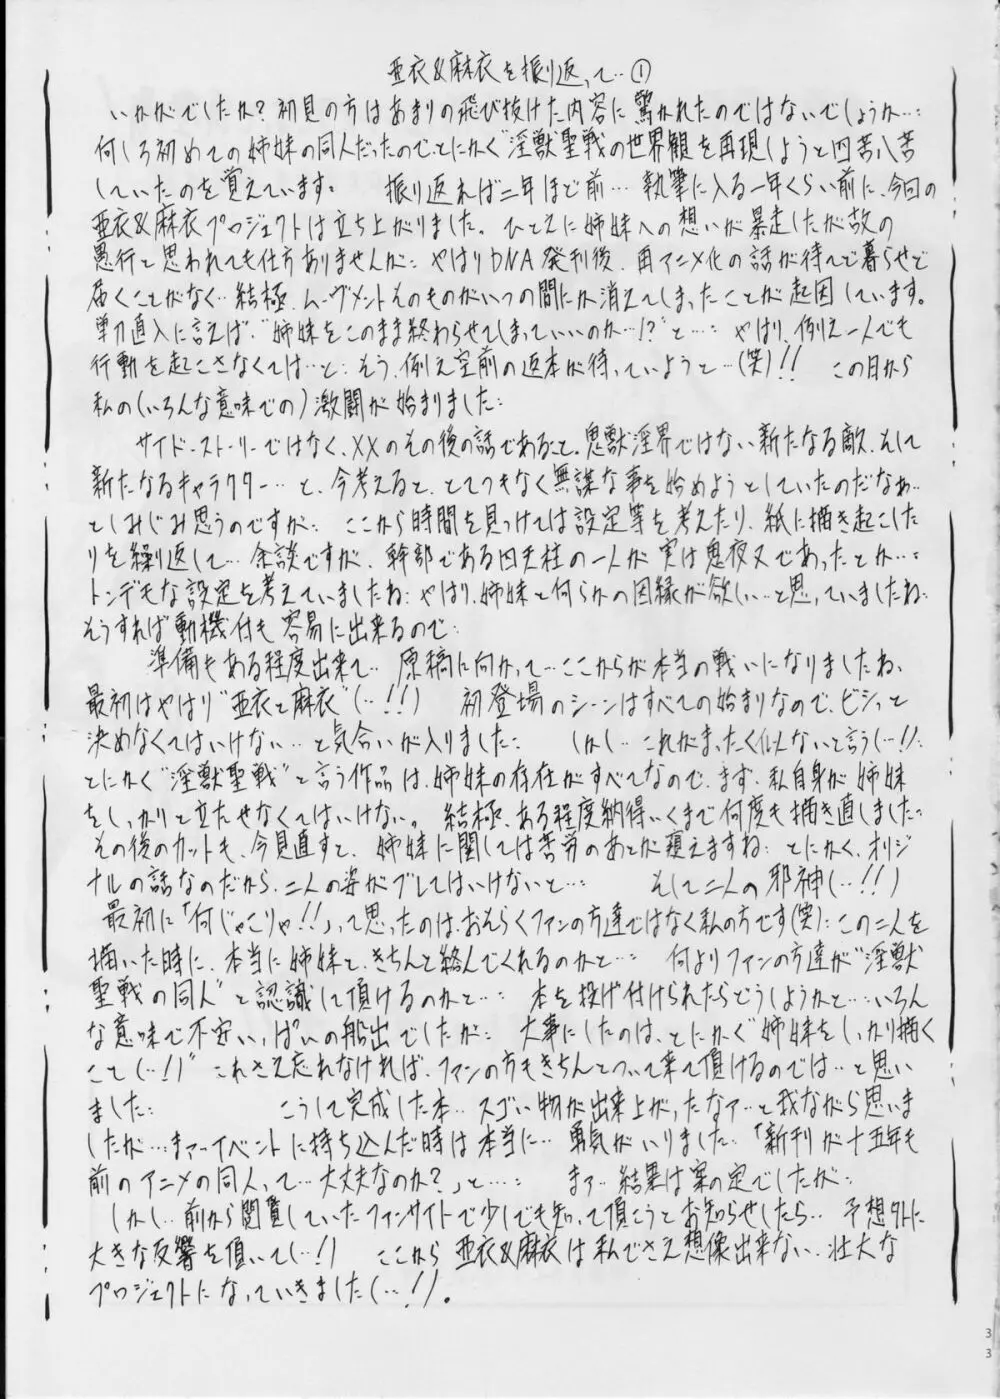 亜衣&麻衣を振り返って…①
いかがでしたか?初見の方はあまりの飛び抜けた内容に驚かれたのではないでしょうか…:
何しろ初めての姉妹の同人だったので、とにかく"淫獣聖戦の世界観を再現しようと四苦八苦
していたのを覚えています。 振り返れば二年ほど前…執筆に入る一年くらい前に、今回の
亜衣&麻衣プロジェクトは立ち上がりました。ひとえに姉妹への想いが暴走したが故の
愚行と思われても仕方ありませんが… やはりDNA発刊後、再アニメ化の話が待てど暮らせど
届くことがなく…結極、ムーヴメントそのものがいつの間にか消えてしまったことが起因しています。
単刀直入に言えば、"姉妹をこのまま終わらせてしまっていいのか…!?"と…: やはり、例え一人でも
行動を起こさなくては…と: そう、例え空前の返本が待っていようと…(笑)!! この日から
私の(いろんな意味での)激闘が始まりました:
サイド・ストーリーではなく、XXのその後の話であること、鬼獣淫界ではない新たなる敵、そして
新たなるキャラクター…と、今考えると、とてつもなく無謀な事を始めようとしていたのだなぁ…
としみじみ思うのですが: ここから時間を見つけては設定等を考えたり、紙に描き起こした
りを繰り返して… 余談ですが、幹部である四天柱の一人が実は鬼夜叉であったとか…:
トンデモな設定を考えていましたね: やはり、姉妹と何らかの因縁が欲しい…と思っていましたね:
そうすれば動機付も容易に出来るので:
準備もある程度出来て… 原稿に向かって…ここからが本当の戦いになりましたね、
最初はやはり"亜衣と麻衣"(…!!) 初登場のシーンはすべての始まりなので、ビシッと
決めなくてはいけない…と気合いが入りました: しかし…これがまったく似ないと言う(…!!):
とにかく"淫獣聖戦"と言う作品は、姉妹の存在がすべてなので、まず、私自身が姉妹
をしっかりと立たせなくてはいけない。 結極、ある程度納得いくまで何度も描き直しました:
その後のカットも、今見直すと、姉妹に関しては苦労のあとが窺えますね: とにかく、オリジ
ナルの話なのだから、二人の姿がブレてはいけないと…: そして二人の邪神(…!!)
最初に「何じゃこりゃ!!」って思ったのは、おそらくファンの方達ではなく私の方です(笑): この二人を
描いた時に、本当に姉妹と、きちんと絡んでくれるのかと…: 何よりファンの方達が"淫獣
聖戦の同人"と認識して頂けるのかと…: 本を投げ付けられたらどうしようかと…:いろん
な意味で不安いっぱいの船出でしたが: 大事にしたのは、とにかく"姉妹をしっかり描く
こと(…!!)" これさえ忘れなければ、ファンの方もきちんとついて来て頂けるのでは…と思い
ました: こうして完成した本…スゴい物が出来上がったなァ…と我ながら思いま
したが…まァ…イベントに持ち込んだ時は本当に…勇気がいりました…「新刊が十五年も
前のアニメの同人って…大丈夫なのか?」と…: まァ…結果は案の定でしたが:
しかし…前から閲覧していたファンサイトで少しでも知って頂こうとお知らせしたら…予想外に
大きな反響を頂いて(…!!) ここから 亜衣&麻衣は私でさえ想像出来ない、壮大な
プロジェクトになっていきました(…!!)。
33